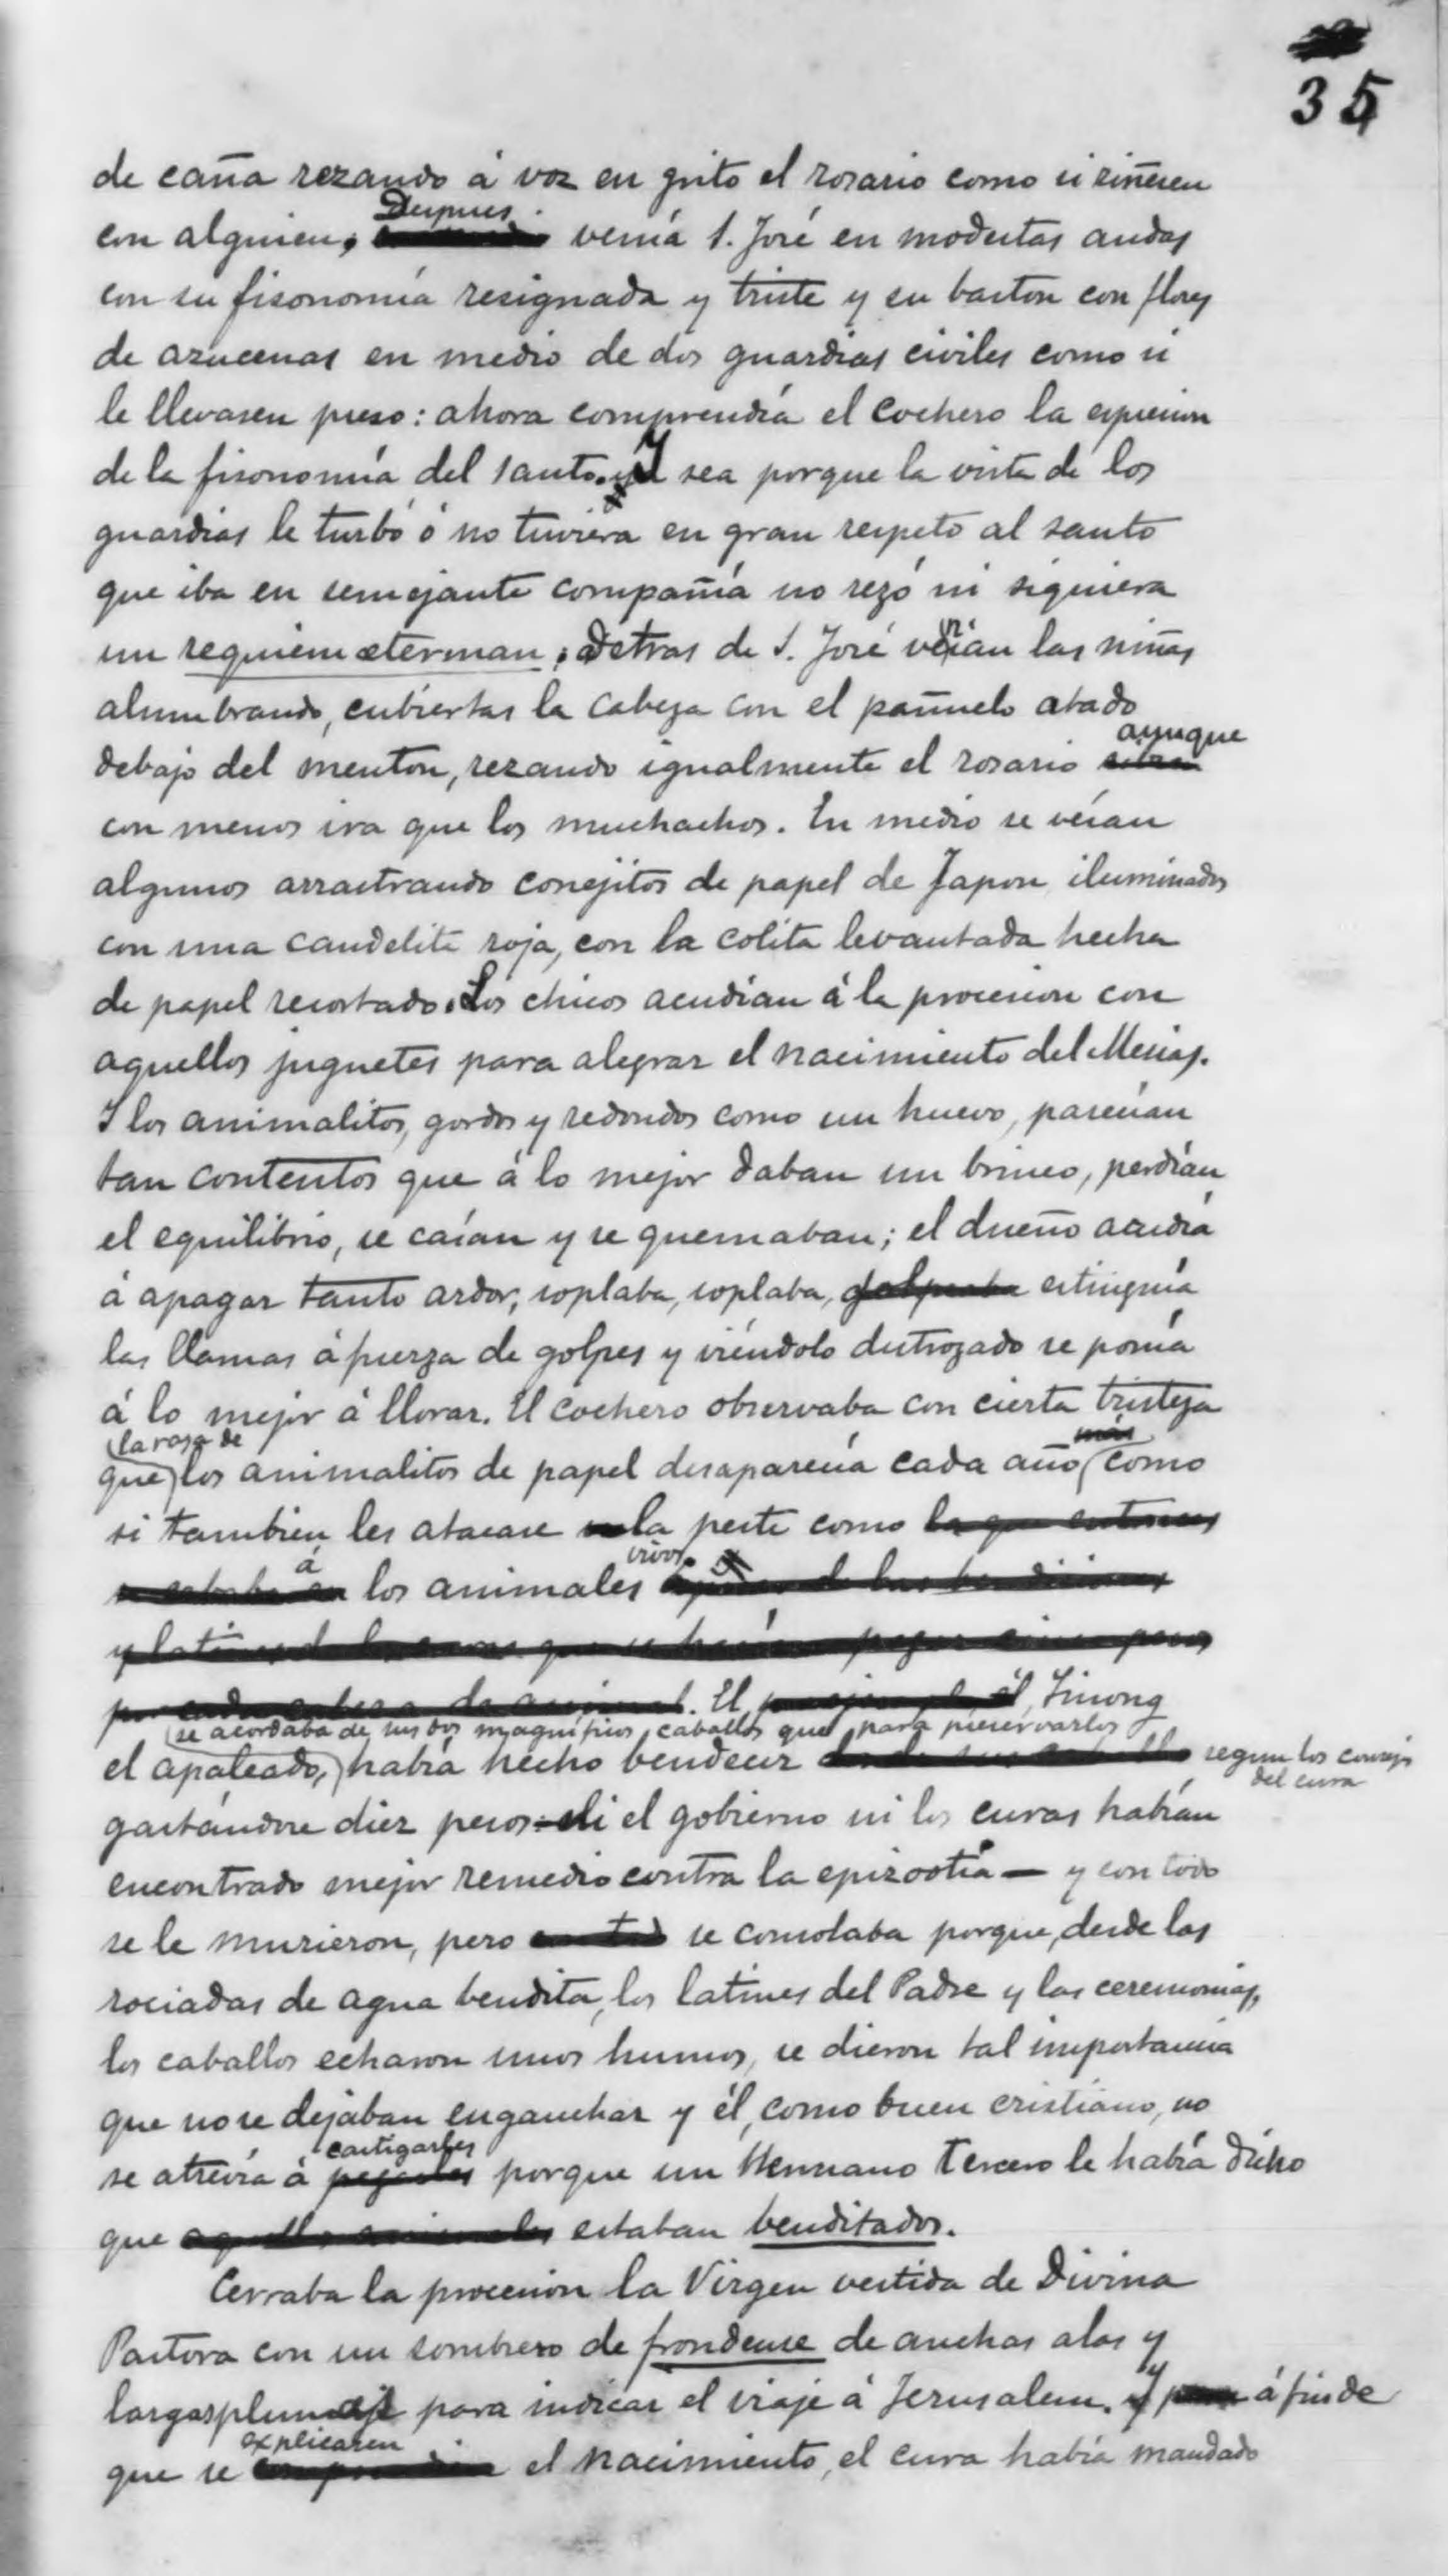 35
de caña rezando á voz en grito el rosario como si riñesen
con alguien. Despues venía S. José en modestas andas
con su fisonomía resignada y triste y su baston con flores
de azucenas en medio de dos guardias civiles como si
le llevasen preso: ahora comprendía el cochero la espresion
de la fisonomía del santo. Y sea porque la vista de los
guardias le turbó ó no tuviera en gran respeto al santo
que iba en semejante compañía no rezó ni siquiera
un requiem æternam. Detras de S. José venían las niñas
alumbrando, cubiertas la cabeza con el pañuelo atado
debajo del menton, rezando igualmente el rosario aunque
con menos ira que los muchachos. En medio se veían
algunos arrastrando conejitos de papel de Japon iluminados
con una candelita roja, con la colita levantada hecha
de papel recortado. Los chicos acudían á la procesion con
aquellos juguetes para alegrar el nacimiento del Mesias.
Y los animalitos, gordos y redondos como un huevo, parecían
tan contentos que á lo mejor daban un brinco, perdían
el equilibrio, se caían y se quemaban; el dueño acudía
á apagar tanto ardor, soplaba, soplaba, golpeaba estinguía
las llamas á fuerza de golpes y viéndolo destrozado se ponía
á lo mejor á llorar. El cochero observaba con cierta tristeza
que la raza de los animalitos de papel desaparecía cada año más como
si tambien les atacase la peste como la que entonces
á los animales vivos.
El Sinong
el apaleado, se acordaba de sus dos magníficos caballos que para preservarlos había hecho bendecir segun los consejos del cura
gastándose diez pesos – ni el gobierno ni los curas habían
encontrado mejor remedio contra la epizootia – y con todo
se le murieron, pero se consolaba porque, desde las
rociadas de agua bendita, los latines del Padre y las ceremonias,
los caballos echaron unos humos, se dieron tal importancia
que no se dejaban enganchar y él, como buen cristiano, no
se atrevía á pegarles castigarles porque un Hermano tercero le había dicho
que estaban benditados.
Cerraba la procesion la Virgen vestida de Divina
Pastora con un sombrero de frondeuse de anchas alas y
largas plumas para indicar el viaje á Jerusalem. Y á fin de
que se explicasen el nacimiento, el cura había mandado